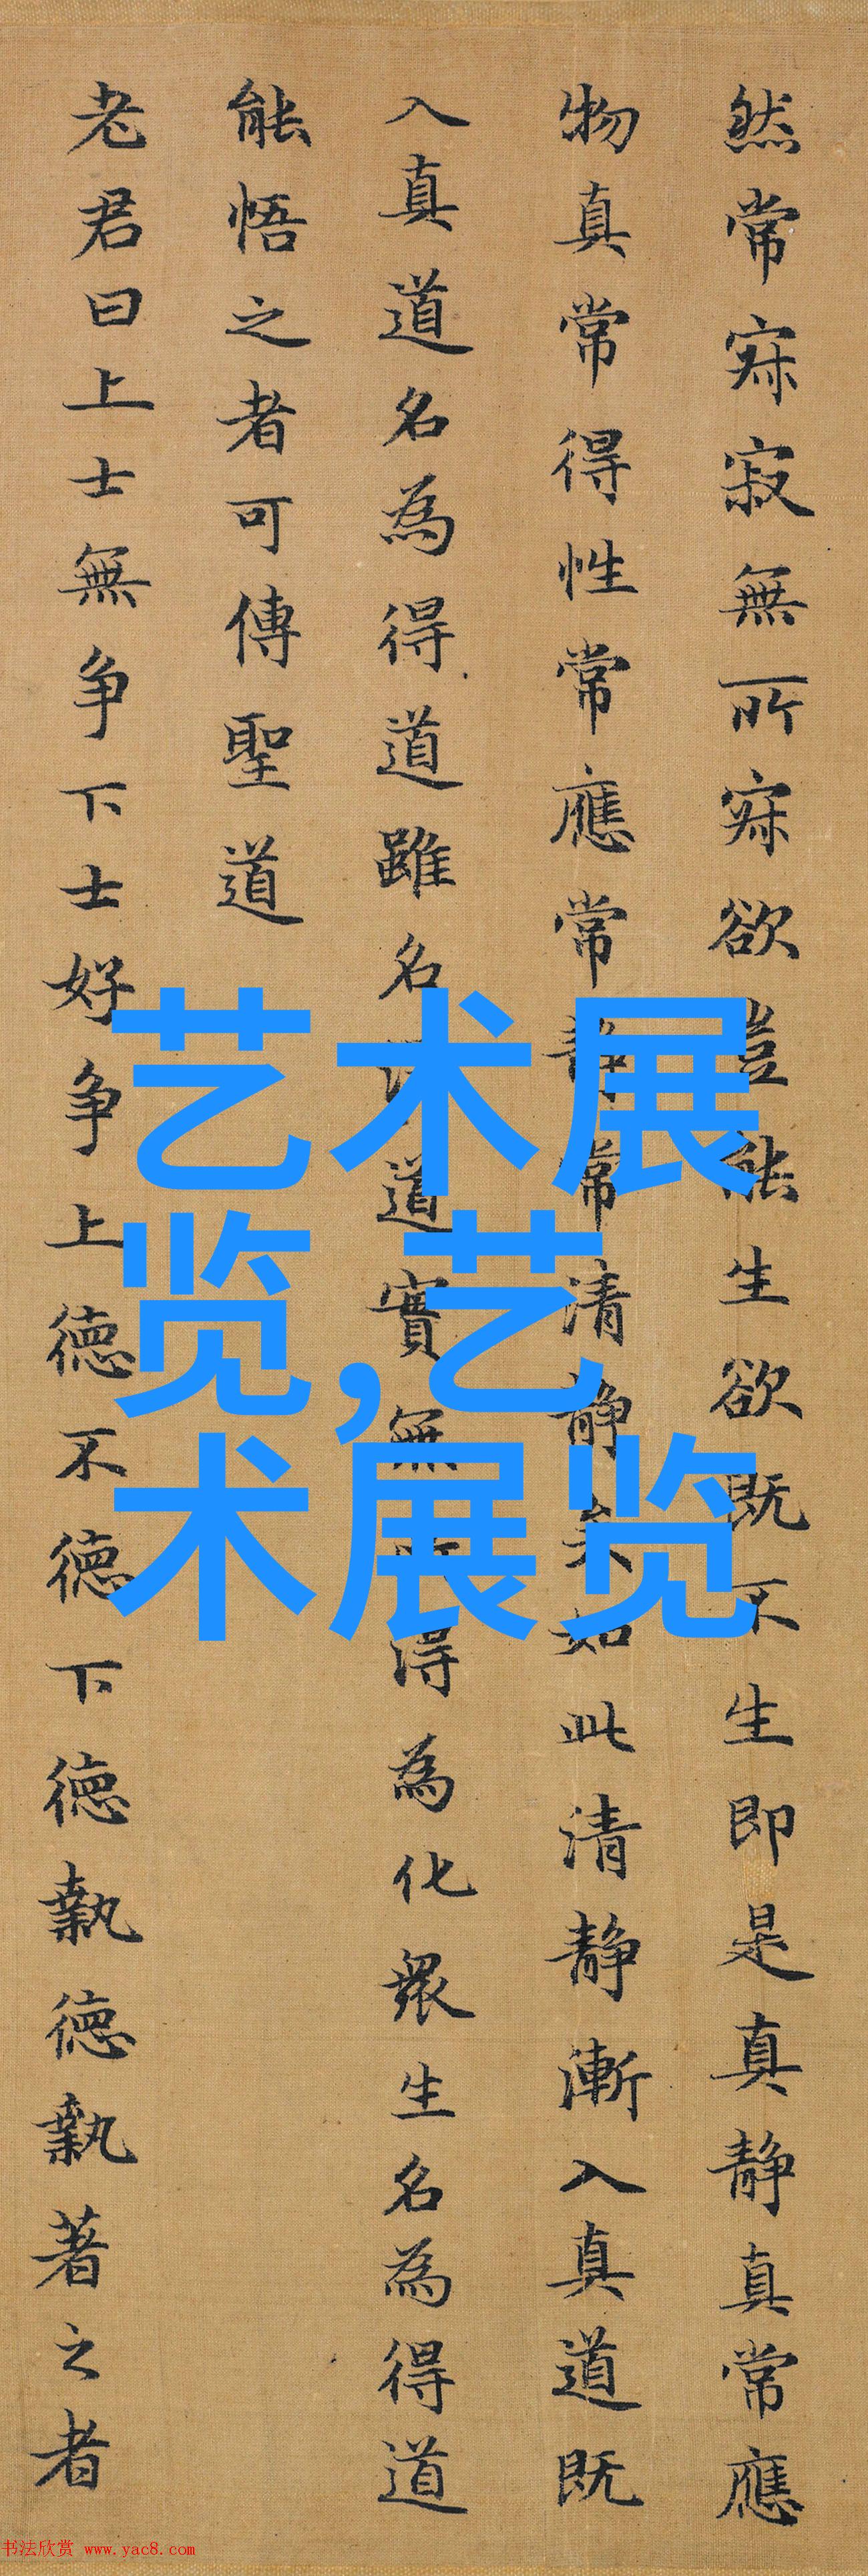 然常寂寂無所寂欲豈能生欲既不生即是真静真常應
物真常得性常應常静常清静矣如此清静漸入真道既
入真道名為得道雖名道實無得為化衆生名為得道
能悟之者可傳聖道
老君曰上士無争下士好争上德不德下德執德執著之者
艺术展
览,艺
术展览
书法欣赏 www.yac8.com